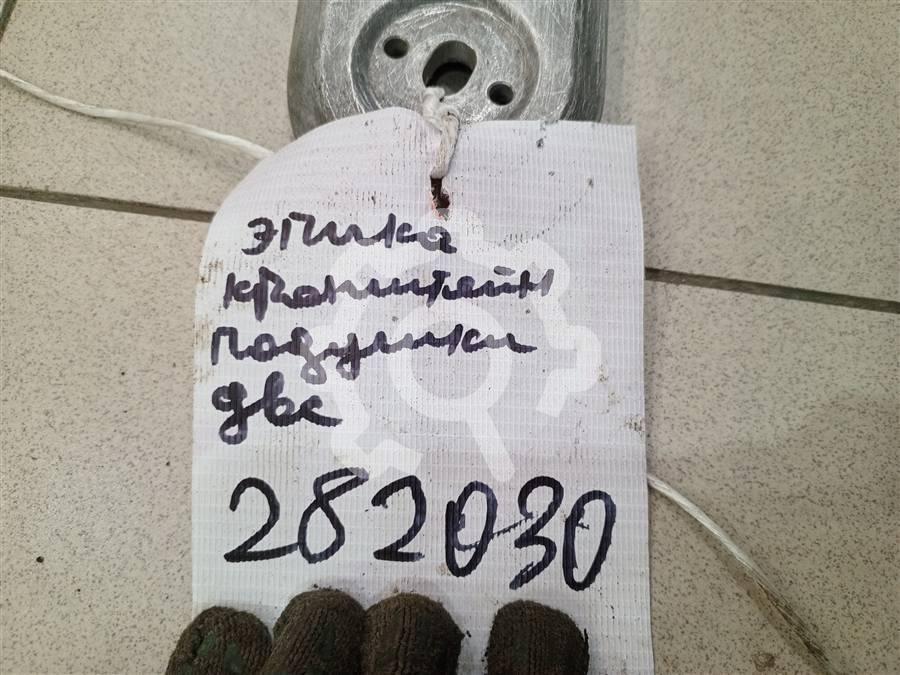 эпика
кронштейн
подушки
двс
282030